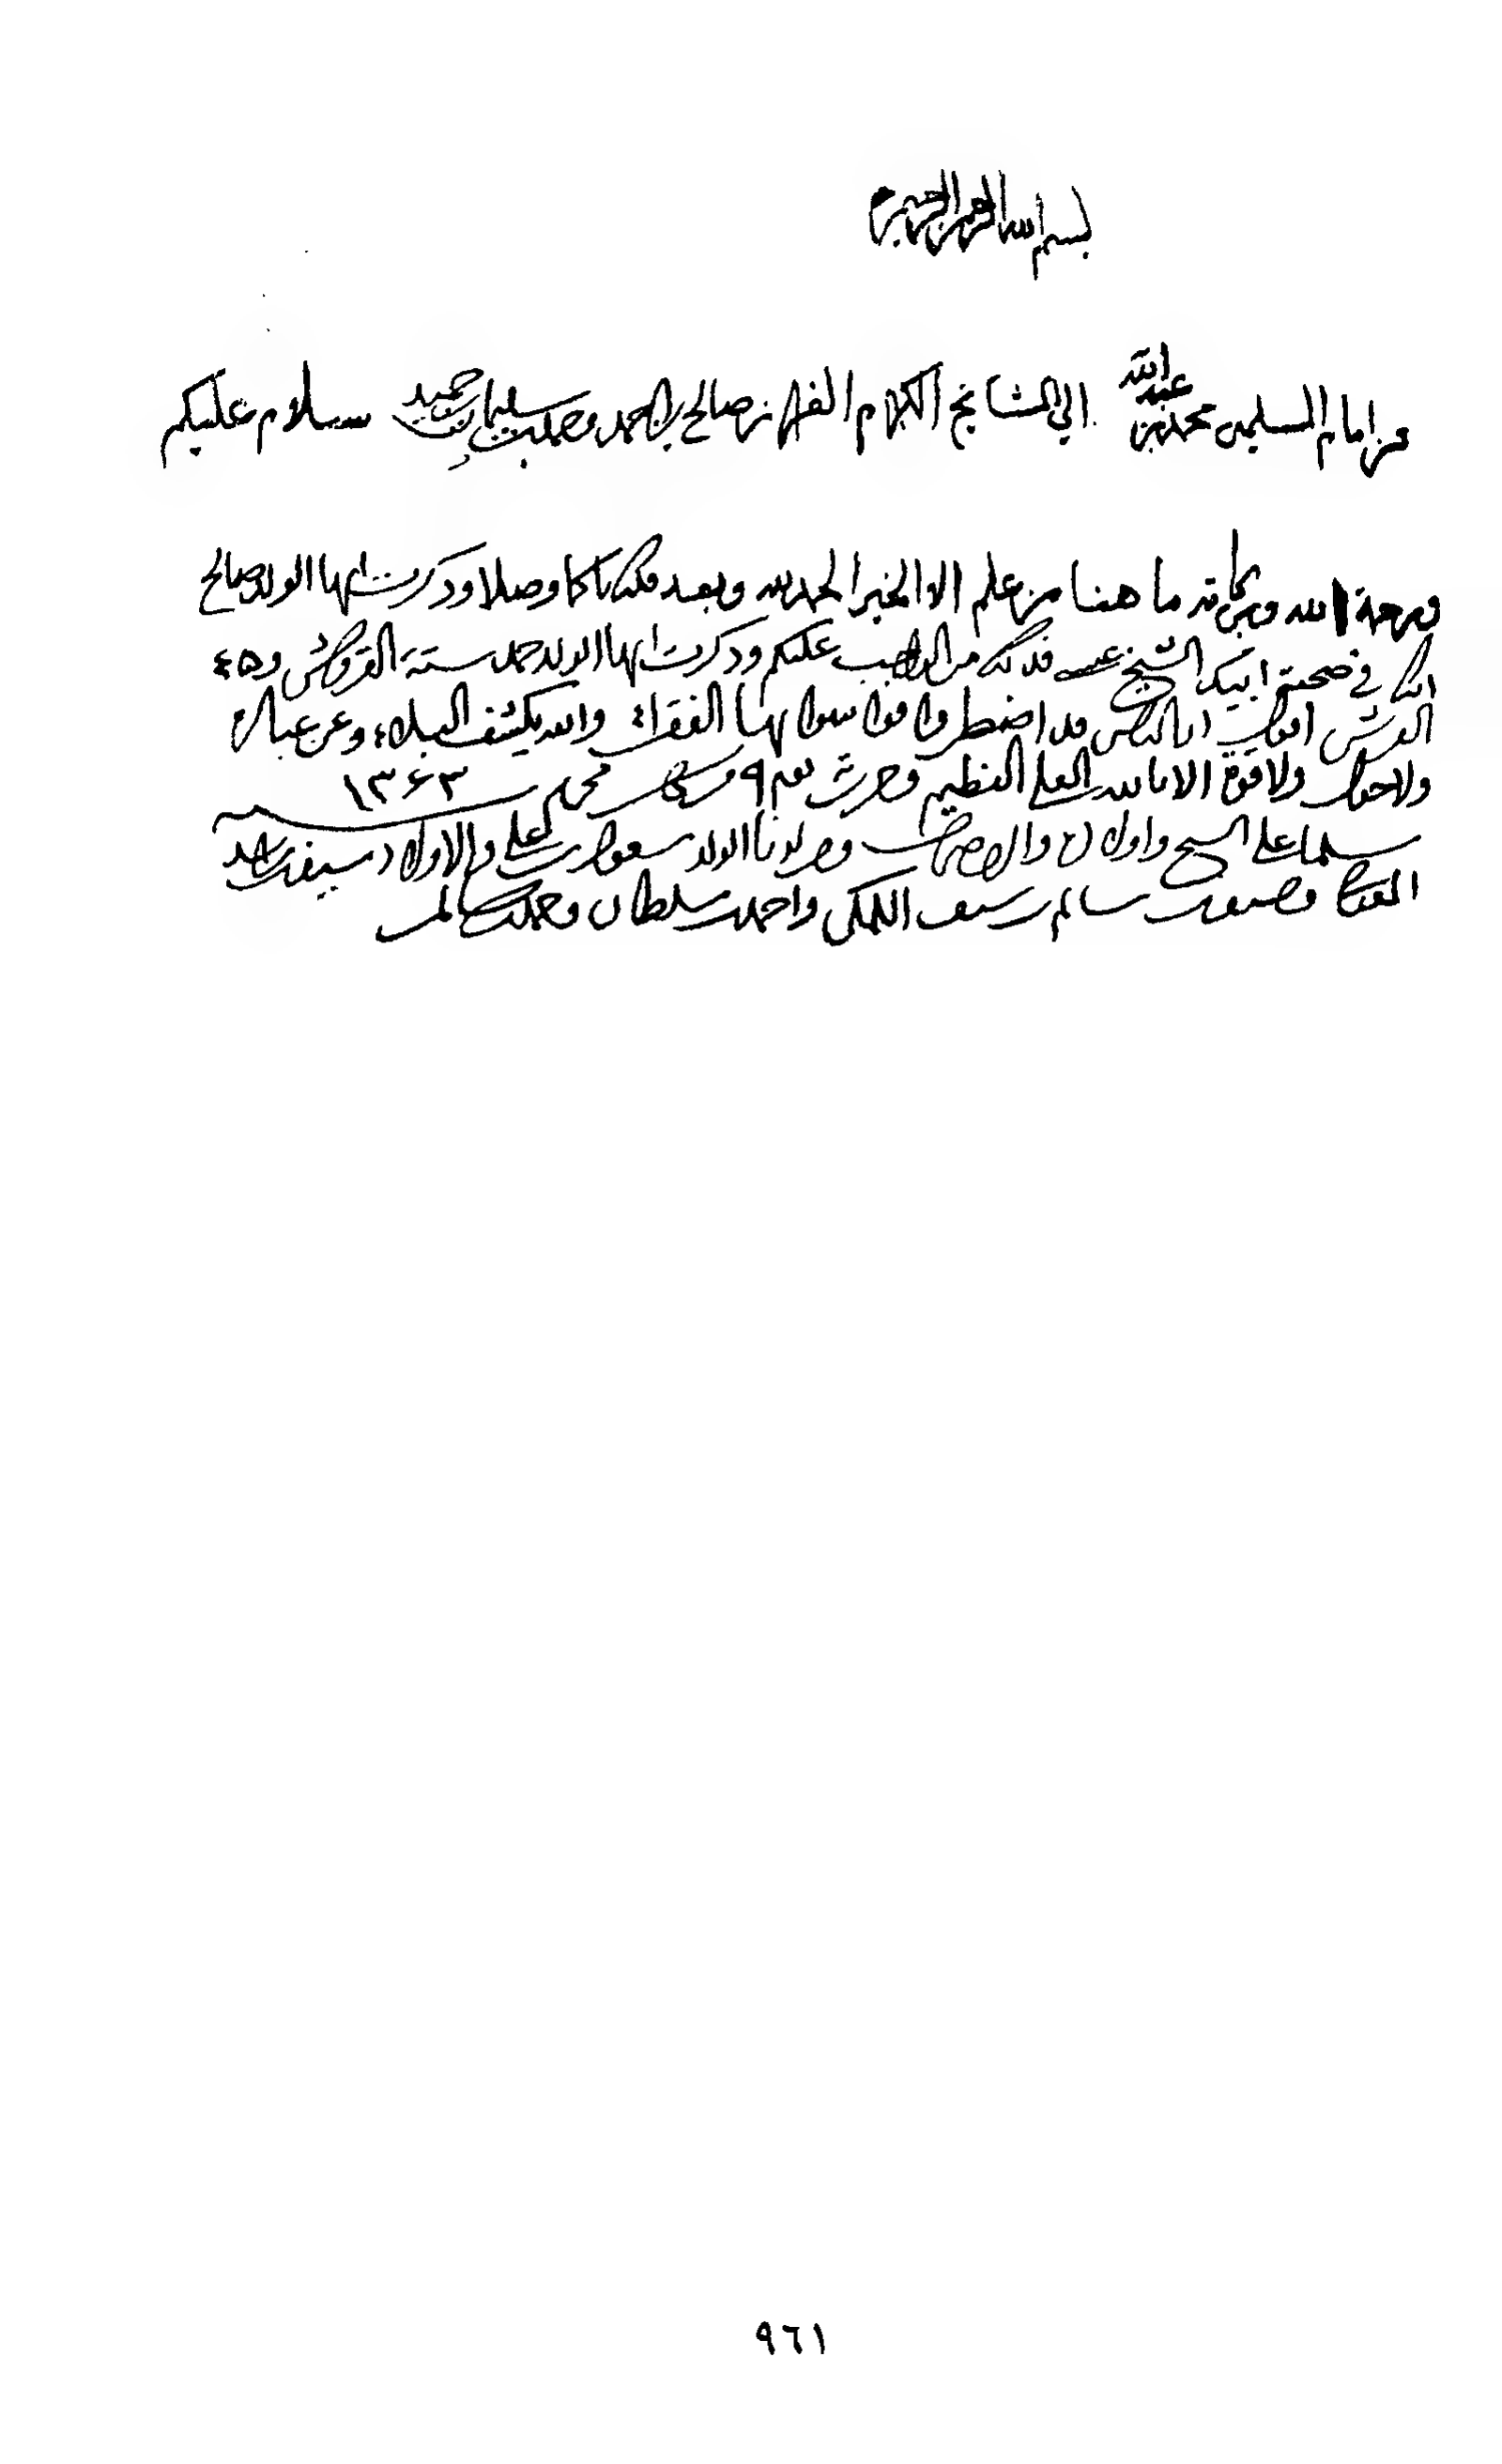 بسم الله الرحمن الرحيم
من امام المسلمين محمد بن عبدالله الى المشايخ الكرام صالح بن احمد ومحمد بن سليمان بن حميد سلام عليكم
ورحمة الله وبركاته ما هنا من علم الا الخير الحمد لله وبعد فكتاباكما وصلا وذكرت ايها الولد صالح
انك في صحة ابيك الشيخ عيسى فذلك من الواجب عليكم وذكرت ايها الولد حمد ستة القروش و٤٥
القرش اقول ان الناس قد اضطروا فواسوا بها الفقراء والله يكشف البلاء وعن عباده
ولا حول ولا قوة الا بالله العلي العظيم يوم ٩ من شهر محرم ١٣٦٣
سلما على الشيخ واولاده والاصحاب ومن لدنا الولد سعود بن علي والاولاد سيف بن احمد
سالم بن سيف واحمد بن سلطان ومحمد بن سالم
٩٦١